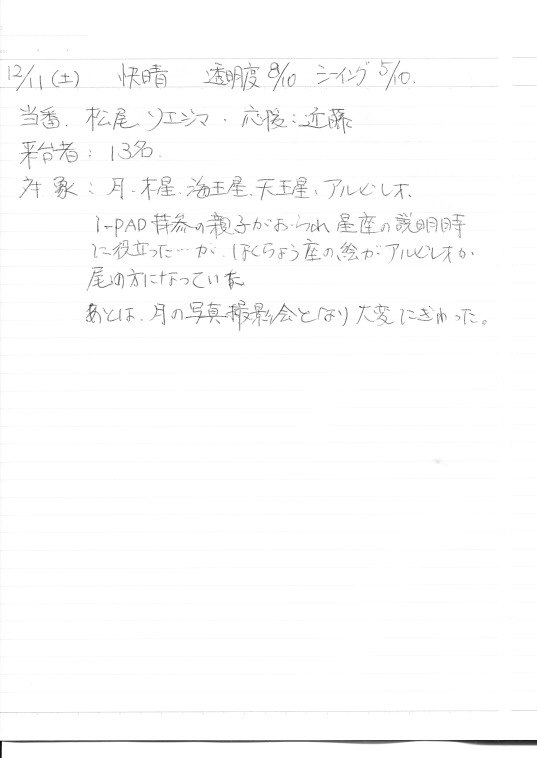 12/11(土) 快晴 透明度8/10 シーイング5/10.
当番. 松尾 ソエジマ・応援:近藤
来台者:13名.
対象:月.木星.海王星.天王星、アルビレオ.
i-PAD持参の親子がおられ星座の説明時
に役立った…が、はくちょう座の絵がアルビレオが
尾の方になっていた
あとは、月の写真撮影会となり大変にぎわった。